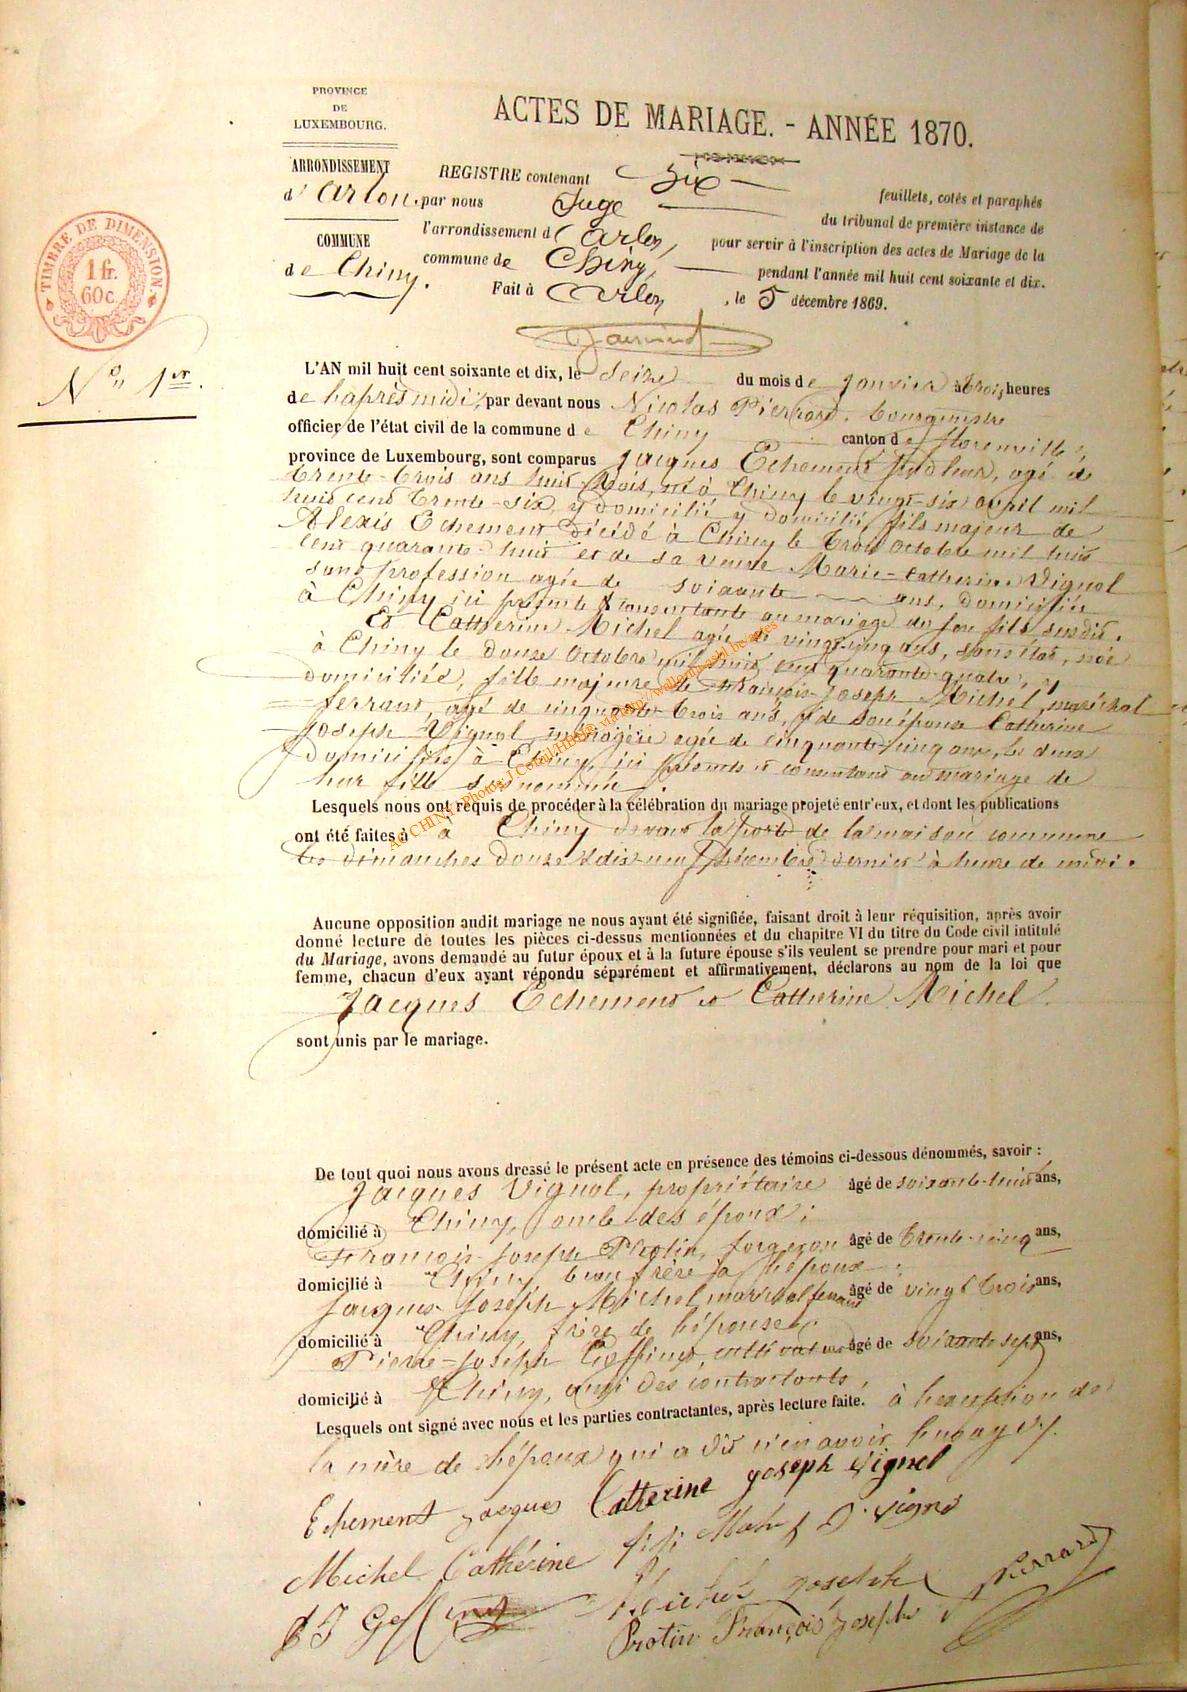 PROVINCE
DE
LUXEMBOURG.
ARRONDISSEMENT
d'Arlon.
COMMUNE
de Chiny.
TIMBRE DE DIMENSION
1 fr.
60 c.
No 1er.
ACTES DE MARIAGE. - ANNÉE 1870.
REGISTRE contenant Six feuillets, cotés et paraphés
par nous Juge du tribunal de première instance de
l'arrondissement d'Arlon, pour servir à l'inscription des actes de Mariage de la
commune de Chiny, pendant l'année mil huit cent soixante et dix.
Fait à Arlon, le 5 décembre 1869.
L'AN mil huit cent soixante et dix, le Seize du mois de Janvier à trois heures
de l'après midi, par devant nous Nicolas Pierrard, bourgmestre
officier de l'état civil de la commune de Chiny canton de florenville,
province de Luxembourg, sont comparus Jacques Echement, agé de
trente-trois ans huit Mois, né à Chiny le vingt-six avril mil
huit cent trente-six, y domicilié y domicilié, fils majeur de
Alexis Echement décédé à Chiny le trois octobre mil huit
cent quarante-huit et de sa veuve Marie-Catherine Vignol
sans profession agée de soixante ans, domiciliée
à Chiny ici présente & consentante au mariage de son fils susdit.
Et Catherine Michel agée de vingt-cinq ans, sans état, née
à Chiny le douze Octobre mil huit cent quarante-quatre, y
domiciliée, fille majeure de François-Joseph Michel, maréchal
ferrant, agé de cinquante-trois ans, & de son épouse Catherine
Joseph Vignol, ménagère agée de cinquante-cinq ans, les deux
domiciliés à Chiny, ici présents et consentant au mariage de
leur fille susnommée.
Lesquels nous ont requis de procéder à la célébration du mariage projeté entr'eux, et dont les publications
ont été faites à Chiny devant la porte de la maison commune
les dimanches douze & dix-neuf Décembre dernier à heure de midi.
Aucune opposition audit mariage ne nous ayant été signifiée, faisant droit à leur réquisition, après avoir
donné lecture de toutes les pièces ci-dessus mentionnées et du chapitre VI du titre du Code civil intitulé
du Mariage, avons demandé au futur époux et à la future épouse s'ils veulent se prendre pour mari et pour
femme, chacun d'eux ayant répondu séparément et affirmativement, déclarons au nom de la loi que
Jacques Echement et Catherine Michel
sont unis par le mariage.
De tout quoi nous avons dressé le présent acte en présence des témoins ci-dessous dénommés, savoir :
Jacques Vignol, propriétaire âgé de soixante-huit ans,
domicilié à Chiny, oncle des époux ;
François-Joseph Protin, forgeron âgé de trente-cinq ans,
domicilié à Chiny, beau frère à l'époux ;
Jacques-Joseph Michel, maréchal ferrant âgé de vingt trois ans,
domicilié à Chiny, frère de l'épouse
Pierre-Joseph Goffinet, cultivateur âgé de soixante sept ans,
domicilié à Chiny, ami des contractants,
Lesquels ont signé avec nous et les parties contractantes, après lecture faite. à l'exception de
la mère de l'époux qui a dit n'en avoir l'usage.
Echement Jacques Catherine Joseph Vignol
Michel Catherine
Michel Joseph Pierrard
Protin François Joseph